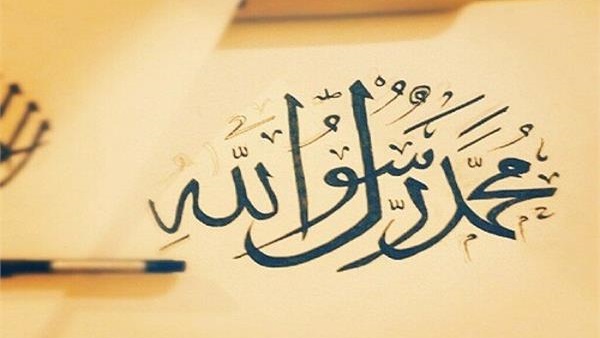 مُحَمَّدٌ رَسُولُ اللهِ